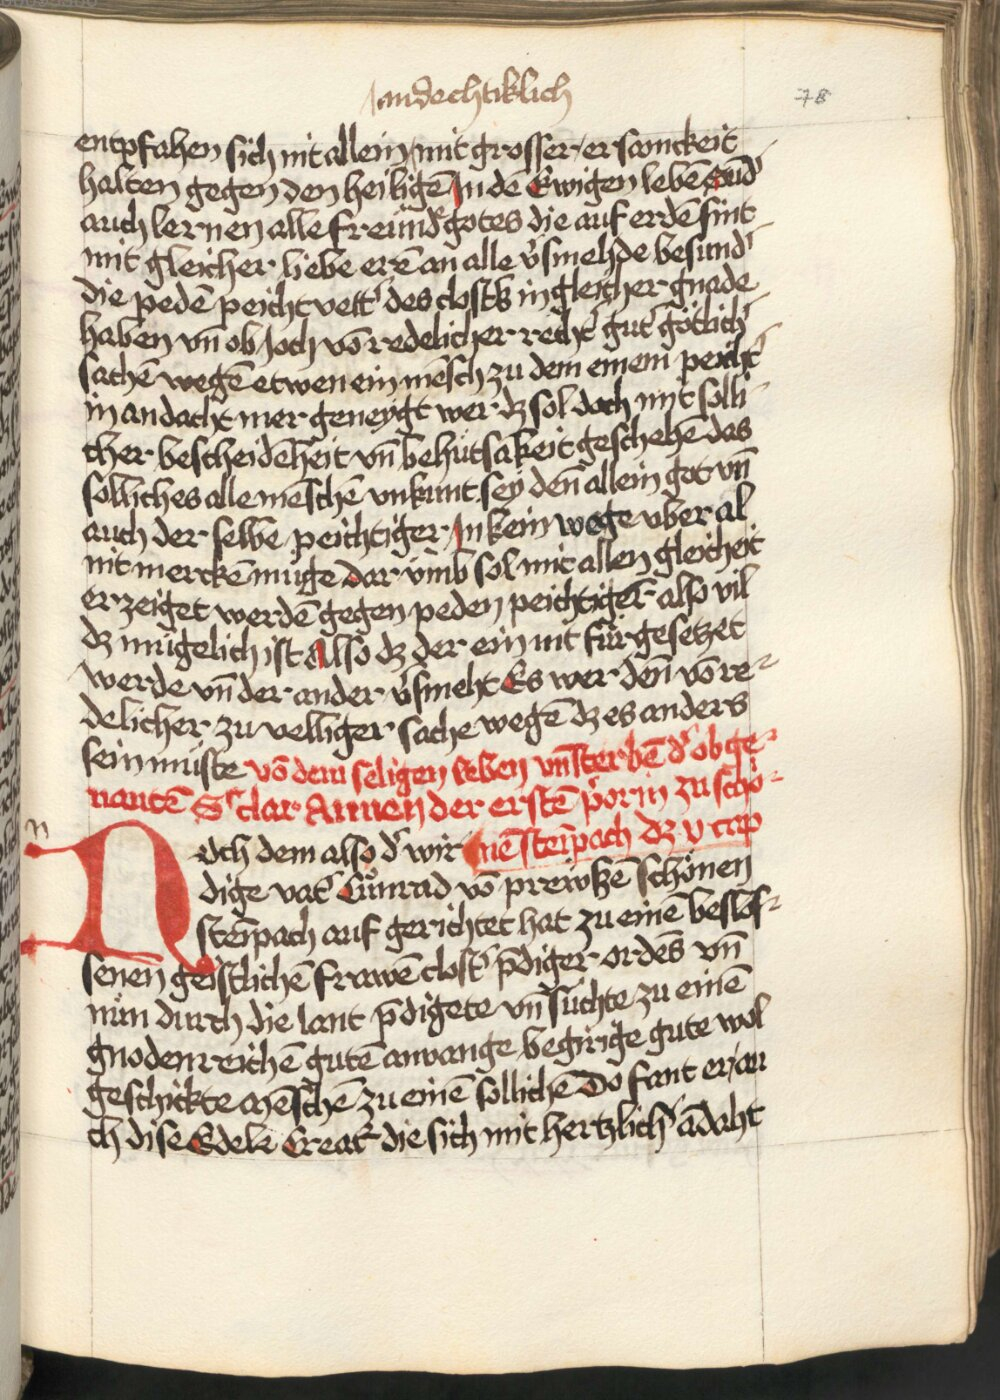 andechtiklich
78
entpfahen sich nit allein mit grosser ersamckeit
halten gegen den heiligē Jn dē Ewigen lebē Sūd̾
auch lernen alle freund̾ gotes die auf erdē sint
mit gleicher liebe erē an alle v̾smehde besund̾
die pedē peicht vett̾ des clost̾s in gleicher gnade
haben vn̄ ob Joch vō redelicher recht̾ gut̾ götlich̾
sachē wegē etwen ein mēsch zu dem einem peicht̾
in andacht mer geneygt wer dz sol doch mit solli
cher bescheidēheit vn̄ behutsākeit geschehē das
solliches alle mēschē vnkunt sey den̄ allein got vn̄
auch der selbe peichtiger Jn kein wege vber al
nit merckē muge Dar vmb sol mit allen gleicheit
erzeiget werdē gegen peden peichtiger also vil
dz mügelich ist Also dz der ein nit für gesetzet
werde vn̄ der ander v̾smeht Es wer den̄ vō re
delicher zu velliger sache wegē dz es anders
sein müste vō dem seligen leben vn̄ sterbē d̾ obge
nantē S̾ clar Annen der erstē p̾orin zu schö
nē steīpach dz v cap
n
och dem also d̾ wir
dige vat̾ Cůnrad vō prewßē schönen
steīpach auf gerichtet hat zu einē beslos
senen geistlichē frawē clost̾ p̄diger ordēs vn̄
nůn durch die lant p̄digete vn̄ suchte zu einē
gnodenreichē gutē anvange begirige gute wol
geschickte mēschē zu einē sollichē Do fant er au
ch dise Edele Creat̾ die sich mit hertzlich̾ ādaht